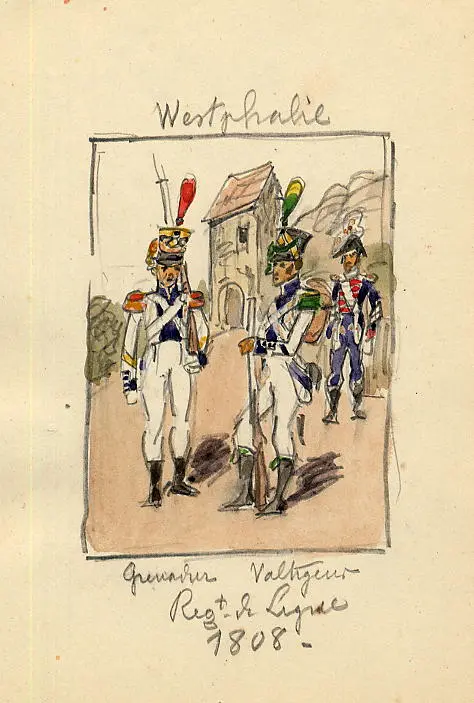 Westphalie
Grenadier Voltigeur
Regt. de Ligne
1808-